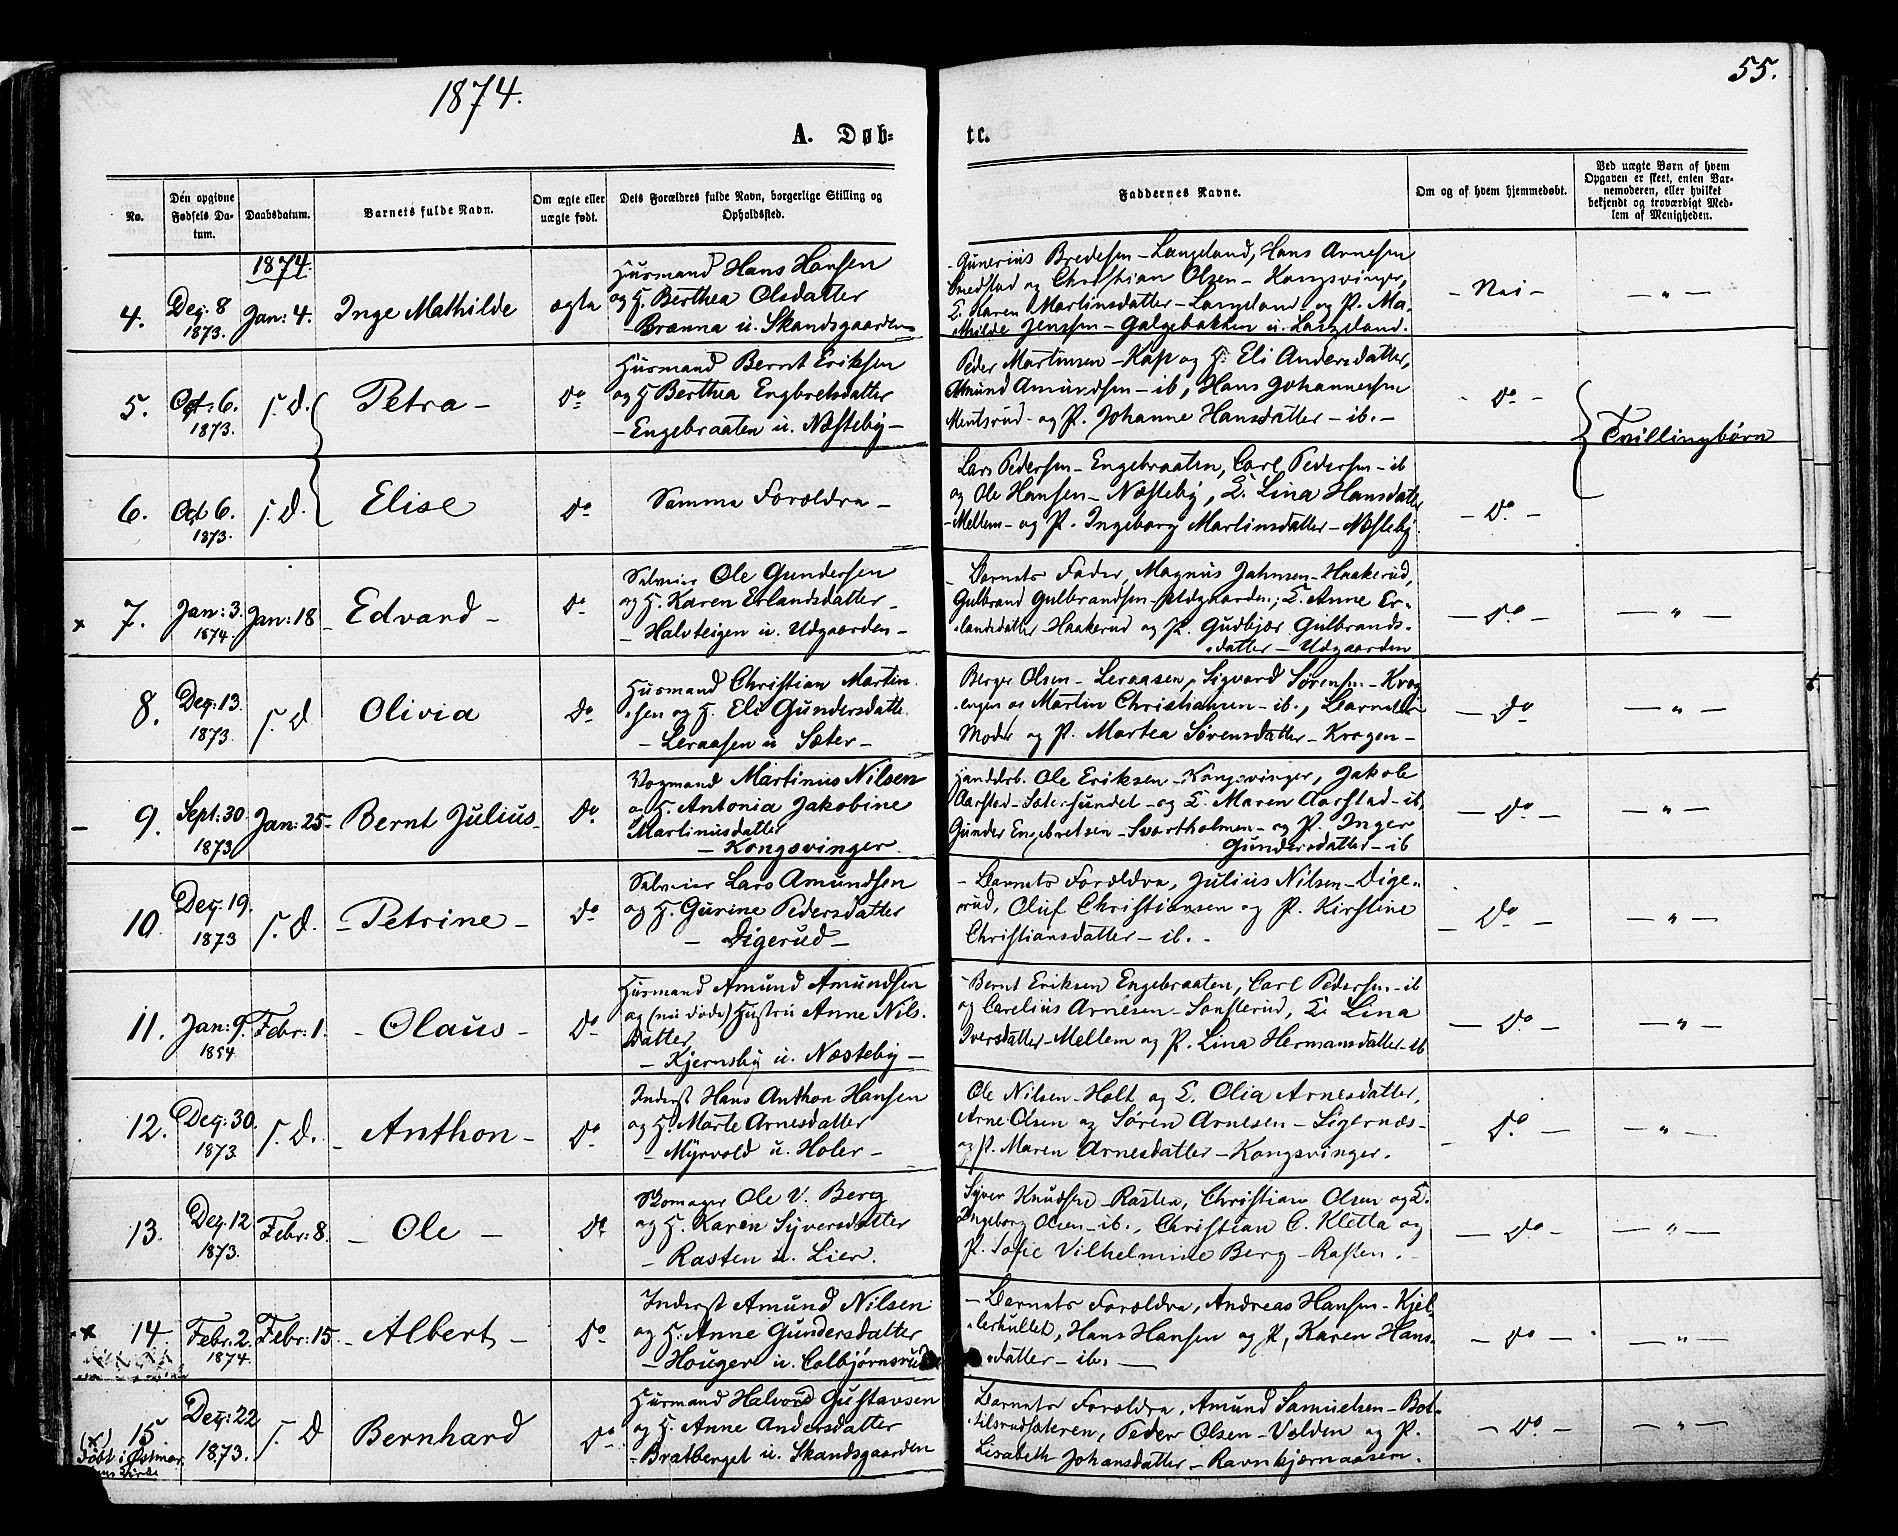 1874.
55.
A. Døb=
te.
No.
Den opgivne
Fødsels Da-
tum.
Daabsdatum.
Barnets fulde Navn.
Om ægte eller
uægte født.
Dets Forældres fulde Navn, borgerlige Stilling og
Opholdssted.
Faddernes Navne.
Om og af hvem hjemmedøbt.
Ved uægte Børn af hvem
Opgaven er skeet, enten Bar-
nemoderen, eller hvilket
bekjendt og troværdigt Med-
lem af Menigheden.
1874.
4.
Dec: 8
1873.
Jan: 4.
Inge Mathilde
ægte
Husmand Hans Hansen
og H. Berthea Olsdatter
Brænna u. Skandsgaarden
Gunerius Bredesen - Langeland, Hans Arnesen
og Christian Olsen - Kongsvinger,
E. Karen Martinsdatter - Langeland og P. Ma-
thilde Jenssen - Galgebakken u. Langeland.
- Nei -
- " -
5.
Oct: 6.
1873.
s. D.
Petra -
Do
Husmand Bernt Eriksen
og H Berthea Engbretsdatter
- Engebraaten u. Næsteby -
Peder Martinsen - Kap og H. Eli Andersdatter,
Amund Amundsen - ib, Hans Johannesen
Mentsrud - og P. Johanne Hansdatter - ib. -
- Do -
Tvillingbørn
6.
Oct 6.
1873.
s. D.
Elise
Do
Samme Forældre -
Lars Pedersen - Engebraaten, Carl Pedersen - ib
og Ole Hansen - Næsteby, E. Lina Hansdatter
- Mellem - og P. Ingeborg Martinsdatter - Næsteby
- Do. -
x 7.
Jan: 3.
1874.
Jan: 18
Edvard -
Do
Selveier Ole Gundersen
og H. Karen Erlandsdatter -
- Halvteigen u. Udgaarden -
- Barnets Fader, Magnus Jahnsen - Haakerud,
Gulbrand Gulbrandsen - Udgaarden; E. Anne Er-
landsdatter - Haakerud og P. Gudbjør Gulbrands-
datter - Udgaarden
- Do -
- " -
8.
Dec: 13.
1873.
s. D
Olivia
Do
Husmand Christian Martin-
sen og H. Eli Gundersdatte.
- Leraasen u Sæter -
Berger Olsen - Leraasen, Sigvard Sørensen - Krog
engen og Martin Christiansen - ib., Barnets
Moder og P. Martea Sørensdatter - Krogen -
- Do
- " -
- 9.
Sept: 30
1873
Jan: 25 -
Bernt Julius -
Do
Vogmand Martinus Nilsen
og H. Antonia Jakobine
Martinusdatter
- Kongsvinger.
Handelsb. Ole Eriksen - Kongsvinger, Jakob
Aarstad - Sætersundet - og E. Maren Aarstad - ib,
Gunder Engebretsen - Svartholmen - og P. Inger
Gundersdatter - ib
- Do -
- " -
10.
Dec: 19.
1873
s. D.
- Petrine -
Do
Selveier Lars Amundsen
og H. Gurine Pedersdatter
- Digerud -
- Barnets Forældre, Julius Nilsen - Dige-
rud, Oluf Christiansen og P. Kirstine
Christiansdatter - ib. -
- Do -
- " -
11.
Jan: 9.
1854.
Febr: 1.
- Olaus -
Do
Husmand Amund Amundsen
og (nu døde) Hustru Anne Nils-
datter
- Kjernsby u. Næsteby -
- Bernt Eriksen Engebraaten, Carl Pedersen - ib
og Carelius Arnesen - Sonsterud, E. Lina
Iversdatter - Mellem og P. Lina Hermansdatter - ib
- Do -
- " -
12.
Dec: 30.
1873.
s. D.
- Anthon -
Do
Inderst Hans Anthon Hansen
og H. Marte Arnesdatter
- Myrvold u. Holer -
Ole Nilsen - Holt og E. Olia Arnesdatter,
Arne Olsen og Søren Arnesen - Sigernæs -
og P. Maren Arnesdatter - Kongsvinger.
- Do -
- " -
13.
Dec. 12
1873.
Febr: 8.
- Ole -
Do
Skomager Ole V. Berg
og H. Karen Syversdatter
- Rasten u. Lier.
Syver Knudsen - Rasten, Christian Olsen og E.
Ingeborg Olsen - ib., Christian C. Kletta og
P. Sofie Vilhelmine Berg - Rasten. -
- Do -
- " -
x 14.
Febr: 2.
1874.
Febr: 15.
- Albert -
Do
Inderst Amund Nilsen
og H. Anne Gundersdatter
- Houger u. Colbjørnsrud
- Barnets Forældre, Andreas Hansen - Kjel-
lerhullet, Hans Hansen og P. Karen Hans-
datter - ib. -
- Do -
- " -
(x) 15
Døbt i Østmar
kens Kirke
Dec: 22
1873.
s. D
Bernhard
Do
Husmand Halvord Gustavsen
og H. Anne Andersdatter
- Bratberget u. Skandsgaarden
Barnets Forældre, Amund Samuelsen - Bot-
tilsrudsæteren, Peder Olsen - Volden og P.
Lisabeth Johansdatter - Ravnbjørnaasen.
- Do -
- " -